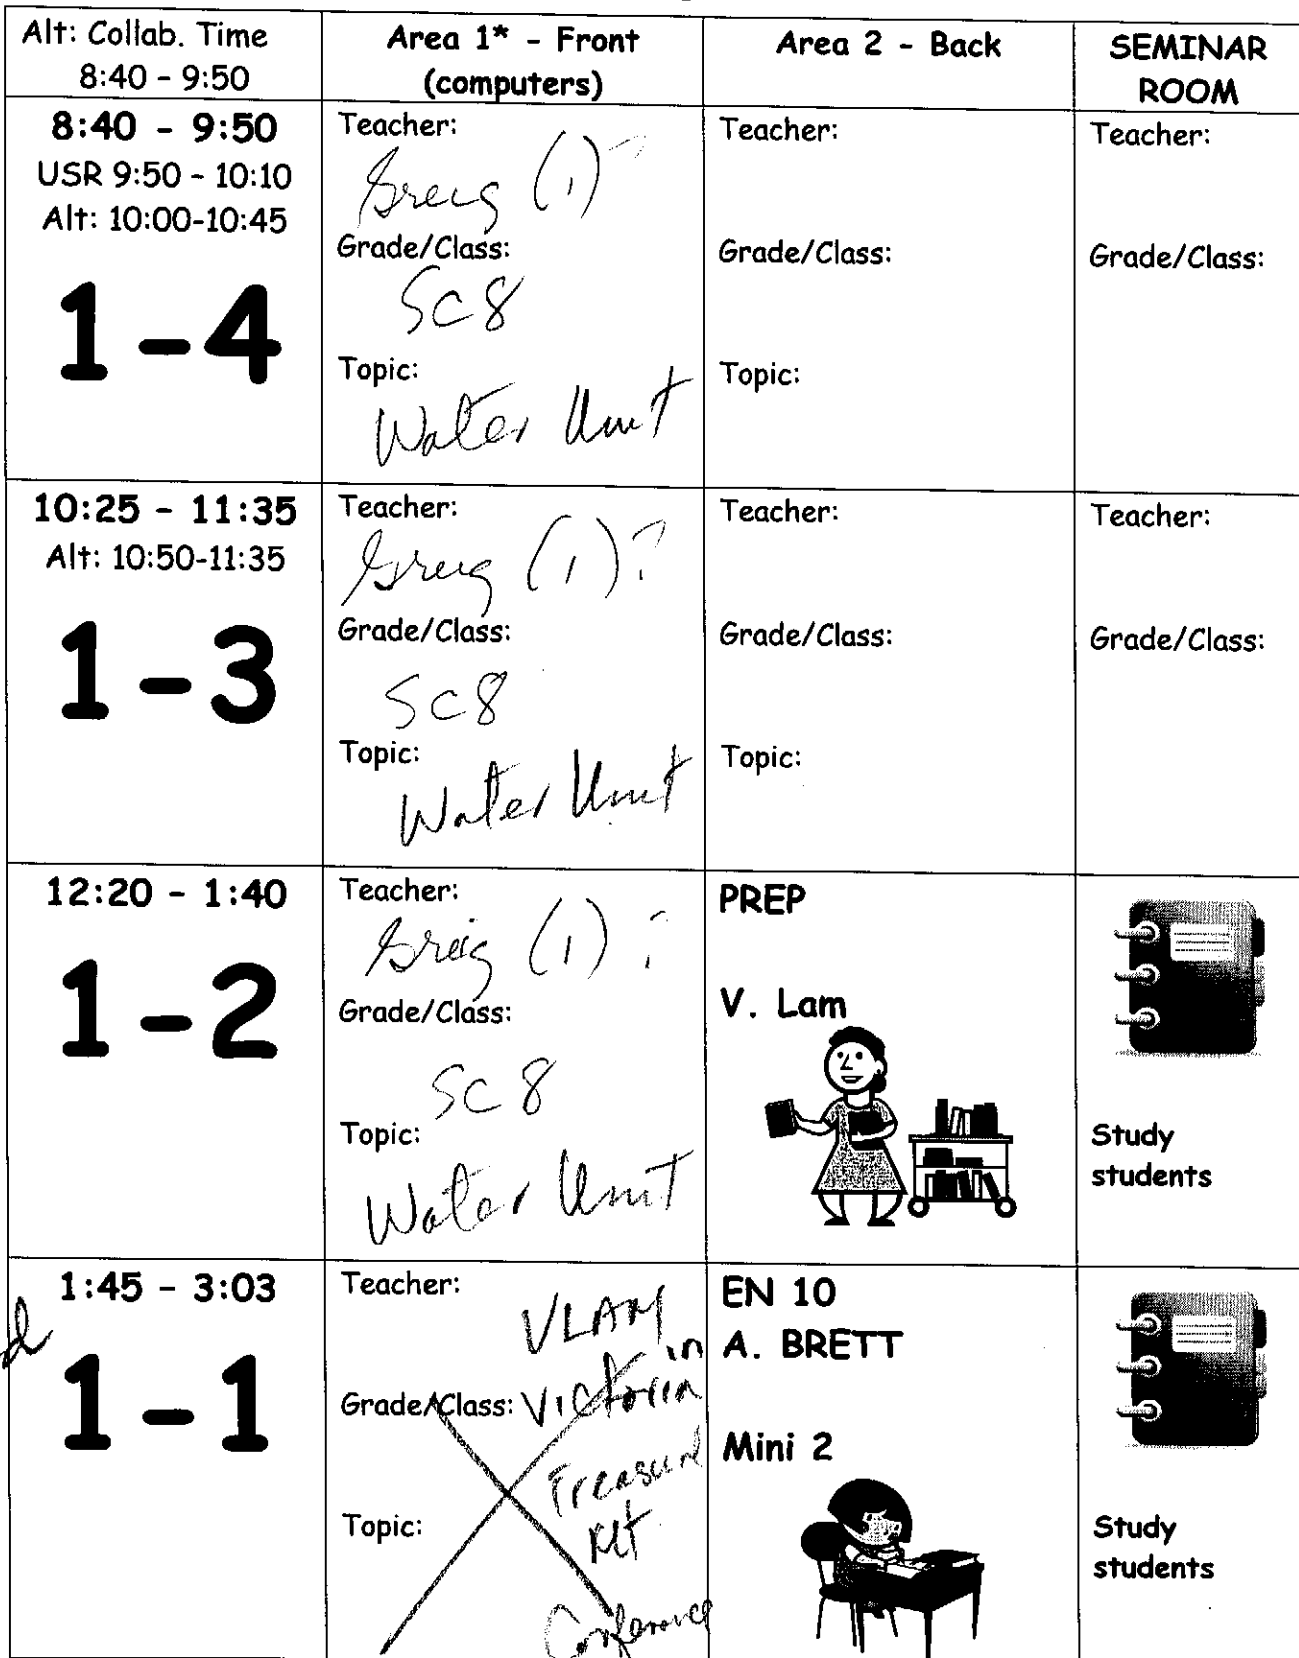 Alt: Collab. Time
8:40 - 9:50
Area 1* - Front
(computers)
Area 2 - Back
SEMINAR
ROOM
8:40 - 9:50
USR 9:50 - 10:10
Alt: 10:00-10:45
1-4
Teacher:
Greig (1)?
Grade/Class:
SC8
Topic:
Water Unit
Teacher:
Grade/Class:
Topic:
Teacher:
Grade/Class:
10:25 - 11:35
Alt: 10:50-11:35
1-3
Teacher:
Greig (1)?
Grade/Class:
SC8
Topic:
Water Unit
Teacher:
Grade/Class:
Topic:
Teacher:
Grade/Class:
12:20 - 1:40
1-2
Teacher:
Greig (1)?
Grade/Class:
SC 8
Topic:
Water Unit
PREP
V. Lam
Study
students
1:45 - 3:03
1-1
Teacher:
VLAM
in
Grade/Class: Victoria
Topic:
Conference
EN 10
A. BRETT
Mini 2
Study
students